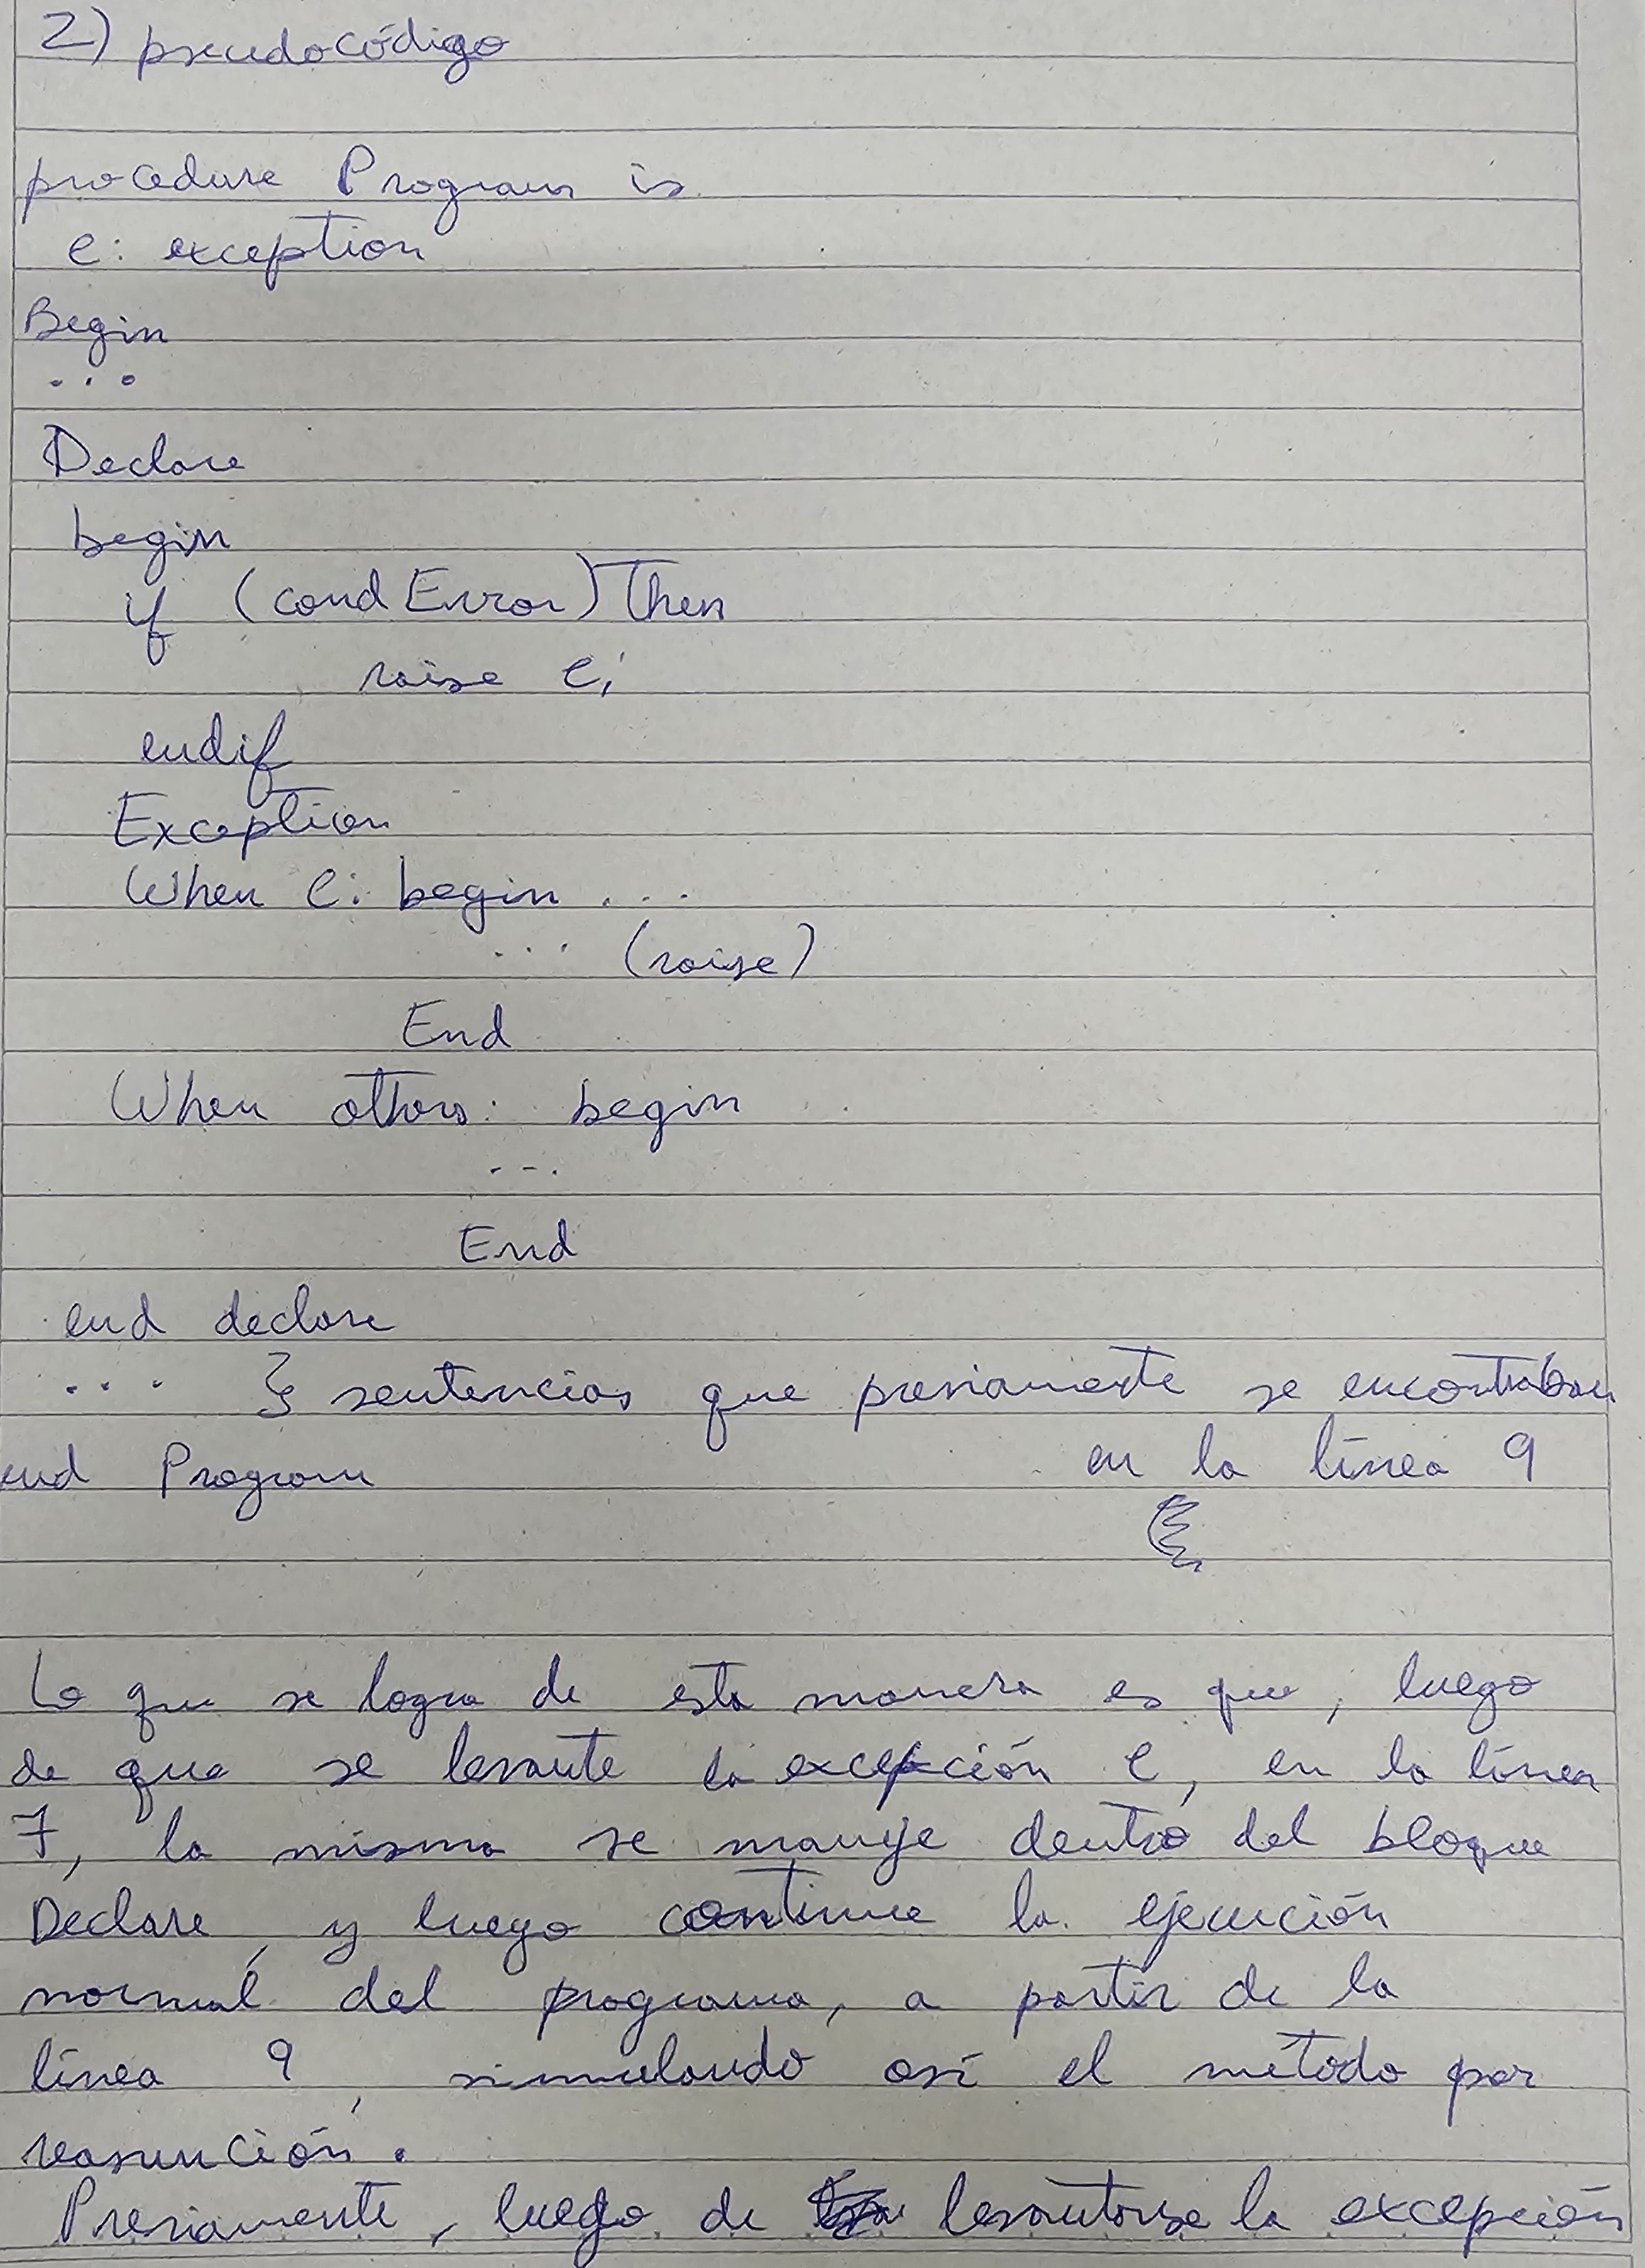 2) pseudocódigo
procedure Program is
e: exception
Begin
...
Declare
begin
if (cond Error) Then
raise e;
endif
Exception
When e: begin ...
... (raise)
End
When others: begin
...
End
end declare
... } sentencias que previamente se encontraban
end Program en la línea 9
Lo que se logra de esta manera es que, luego
de que se levante la excepción e, en la línea
7, la misma se maneje dentro del bloque
Declare, y luego continue la ejecución
normal del programa, a partir de la
línea 9, simulando así el método por
reasunción.
Previamente, luego de levantarse la excepción